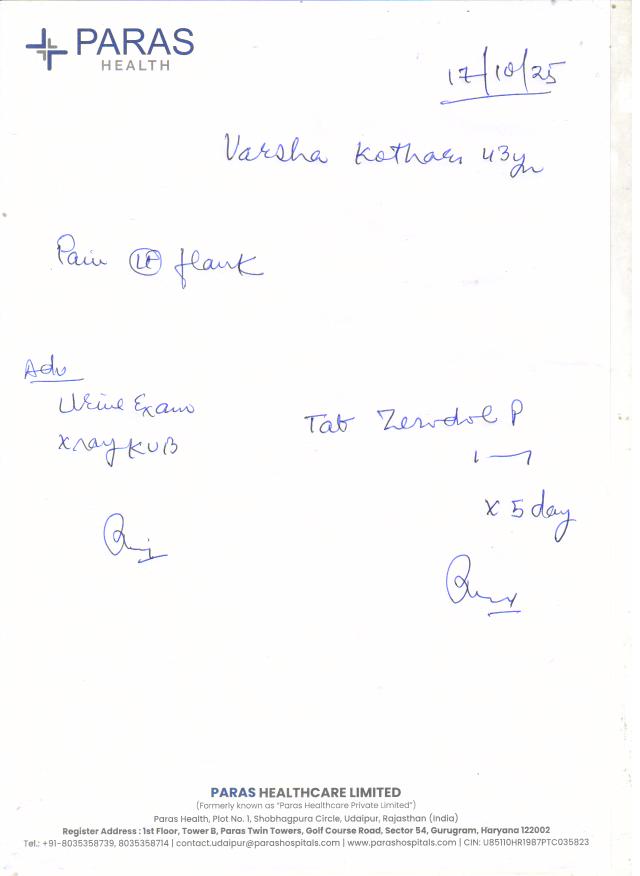 PARAS
HEALTH
17/10/25
Varsha Kothari 43yr
Pain Lt flank
Adv
Urine Exam
Xray KUB
Tab Zerodol P
1—1
x 5 day
PARAS HEALTHCARE LIMITED
(Formerly known as “Paras Healthcare Private Limited”)
Paras Health, Plot No. 1, Shobhagpura Circle, Udaipur, Rajasthan (India)
Register Address : 1st Floor, Tower B, Paras Twin Towers, Golf Course Road, Sector 54, Gurugram, Haryana 122002
Tel.: +91-8035358739, 8035358714 | contact.udaipur@parashospitals.com | www.parashospitals.com | CIN: U85110HR1987PTC035823